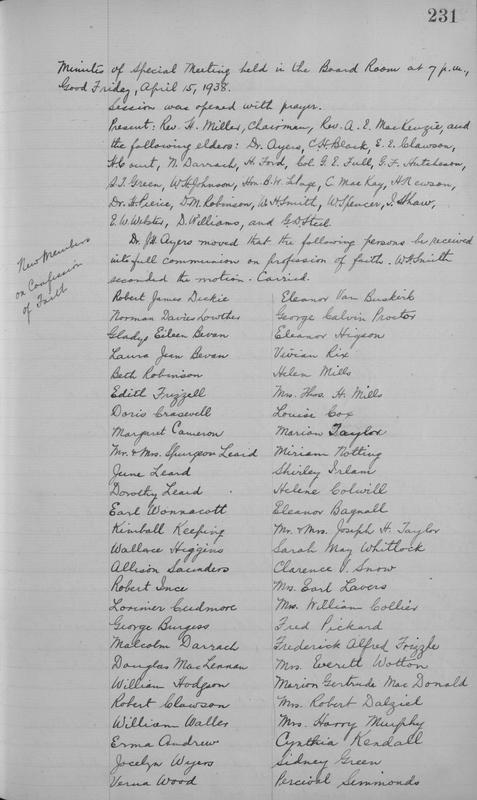 231
Minutes of Special Meeting held in the Board Room at 7 p.m.,
Good Friday, April 15, 1938.
Session was opened with prayer.
Present: Rev. H. Miller, Chairman, Rev. A. E. MacKenzie, and
the following elders: Dr. Ayers, C. H. Black, E. E. Clawson,
H. Court, N. Darrach, H. Ford, Col. G. E. Full, G. F. Hutcheson,
S. T. Green, W. H. Johnson, Hon. B. W. LePage, C. MacKay, H. Rewson,
Dr. H. Peirce, D. M. Robinson, W. H. Smith, W. Spencer, J. Shaw,
E. W. Webster, D. Williams, and G. D. Steel
New Members
on Confession
of Faith
Dr. J. H. Ayers moved that the following persons be received
into full communion on profession of faith. W. H. Smith
seconded the motion. Carried.
Robert James Dickie
Norman Davies Lowther
Gladys Eileen Bevan
Laura Jean Bevan
Beth Robinson
Edith Frizzell
Doris Craswell
Margaret Cameron
Mr. & Mrs. Spurgeon Leard
June Leard
Dorothy Leard
Earl Wonnacott
Kimball Keeping
Wallace Higgins
Allison Saunders
Robert Ince
Lorimer Cudmore
George Burgess
Malcolm Darrach
Douglas MacLennan
William Hodgson
Robert Clawson
William Waller
Erma Andrew
Jocelyn Wyers
Verna Wood
Eleanor Van Buskirk
George Calvin Proctor
Eleanor Higson
Vivian Rix
Helen Mills
Mrs. Thos. H. Mills
Louise Cox
Marion Taylor
Miriam Notting
Shirley Irlam
Helene Colwill
Eleanor Bagnall
Mr. & Mrs. Joseph H. Taylor
Sarah May Whitlock
Clarence J. Snow
Mrs. Earl Lavers
Mrs. William Collier
Fred Pickard
Frederick Alfred Frizzle
Mrs. Everett Wotton
Marion Gertrude MacDonald
Mrs. Robert Dalziel
Mrs. Harry Murphy
Cynthia Kendall
Sidney Green
Percival Simmonds